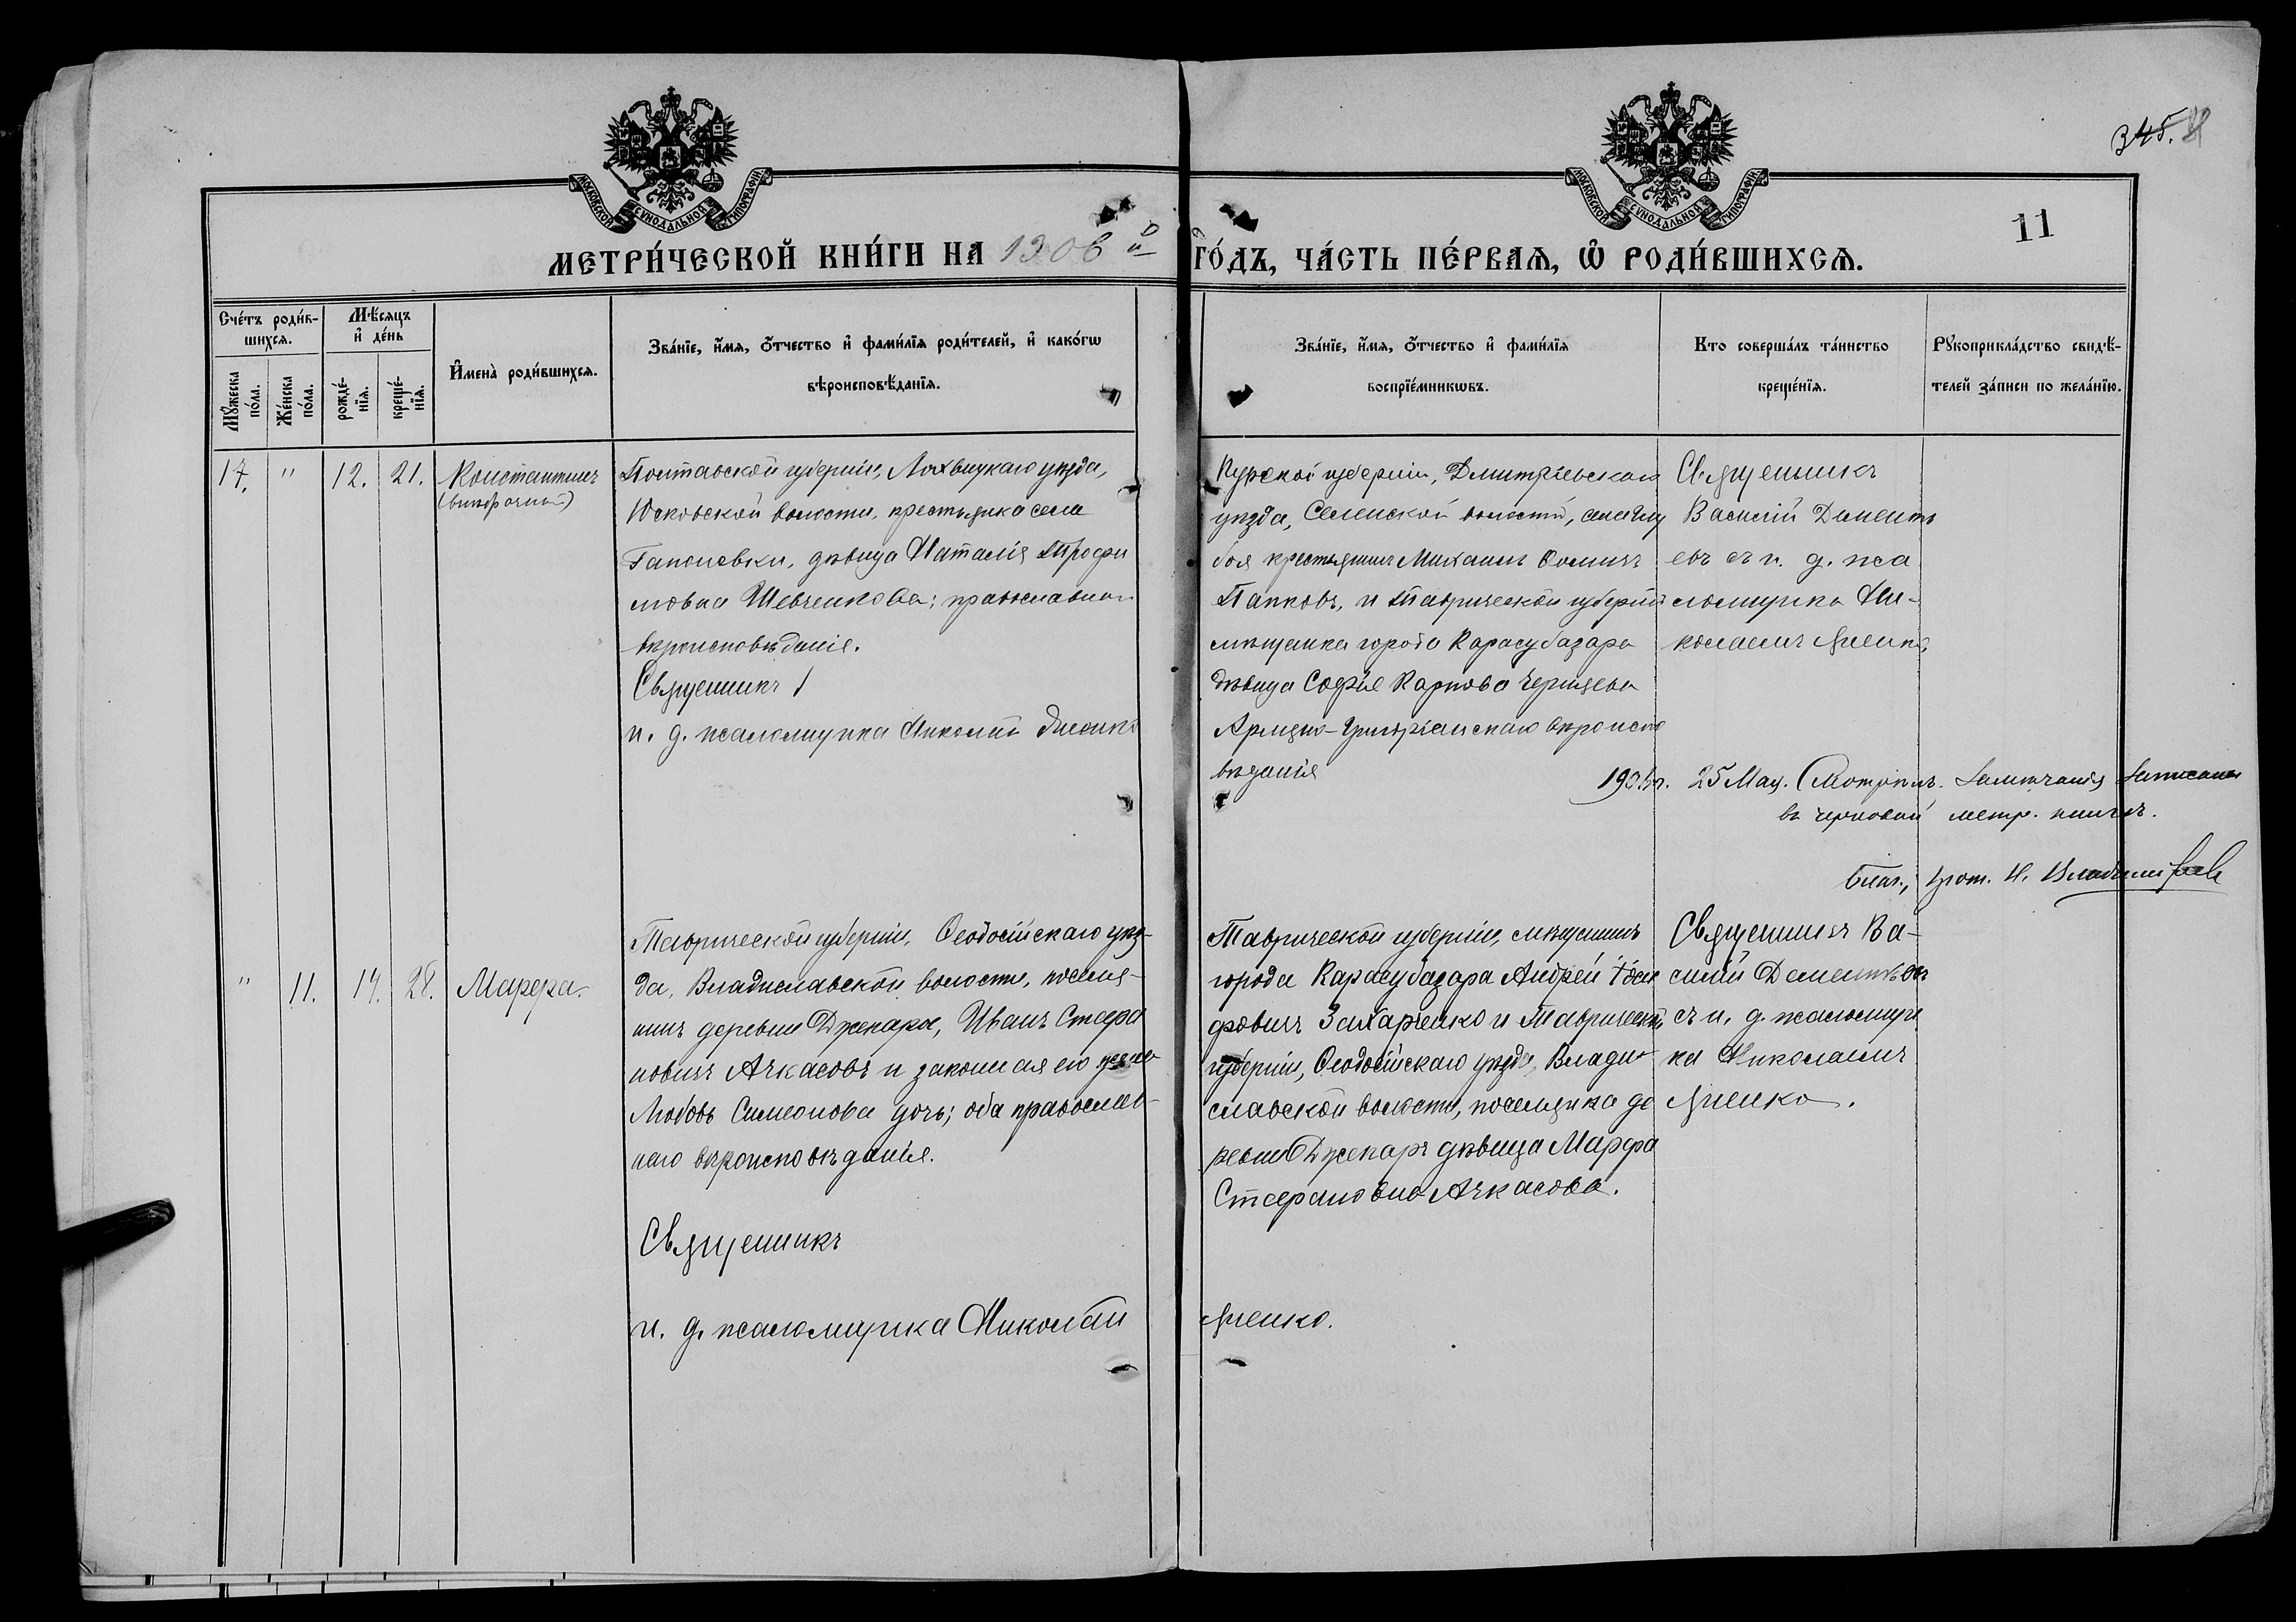 345.
11
МОСКОВСКОЙ СѴНОДАЛЬНОЙ ТИПОГРАФІИ
МОСКОВСКОЙ СѴНОДАЛЬНОЙ ТИПОГРАФІИ
МЕТРИ́ЧЕСКОЙ КНИ́ГИ НА 1906 й ГО́ДЪ, ЧА́СТЬ ПЕ́РВАѦ, Ѡ҆ РОДИ́ВШИХСѦ.
Сче́тъ роди́в-
шихсѧ.
Мꙋ́жеска по́ла.
Же́нска по́ла.
Мѣ́сѧцъ
и҆ де́нь
рожде́-
нїѧ.
креще́-
нїѧ.
И҆мена̀ роди́вшихсѧ.
Зва́нїе, и҆́мѧ, ѻ҆́тчество и҆ фами́лїѧ роди́телей, и҆ како́гѡ
вѣроисповѣ́данїѧ.
Зва́нїе, и҆́мѧ, ѻ҆́тчество и҆ фами́лїѧ
воспрїе́мникѡвъ.
Кто соверша́лъ та́инство
креще́нїѧ.
Рꙋкоприкла́дство свидѣ́-
телей за́писи по жела́нїю.
17. " 12. 21. Константинъ
(внебрачный)
Полтавской губерніи, Лохвицкаго уѣзда,
Юсковской волости, крестьянка села
Гапоновки, дѣвица Наталія Трофи
мовна Шевченкова; православнаго
вѣроисповѣданія.
Священникъ
и. д. псаломщика Николай Яненко
Курской губерніи, Дмитріевскаго
уѣзда, Селенской волости,
крестьянинъ Михаилъ Ѳоминъ
Папковъ, и Таврической губерніи
мѣщанка города Карасубазара
дѣвица Софія Карпова Черняева
Армяно-Григоріанскаго вѣроиспо
вѣданія
Священникъ
Василій Дементь
евъ съ и. д. пса
ломщика Ни-
колаемъ Яненко,
190 г. 25 Мая. Смотрѣлъ. Замѣчанія записаны
въ черновой метр. книгѣ.
Благ., прот. Н. Владиміровъ
" 11. 14. 28. Марѳа.
Таврической губерніи, Ѳеодосійскаго уѣз-
да, Владиславской волости, поселя-
нинъ деревни Джепара, Иванъ Стефа
новичъ Ачкасовъ и законная его жена
Любовь Симеонова дочь; оба православ-
наго вѣроисповѣданія.
Священникъ
и. д. псаломщика Николай Яненко.
Таврической губерніи, мѣщанинъ
города Карасубазара Андрей Іоси
фовичъ Захарченко и Таврической
губерніи, Ѳеодосійскаго уѣзда, Влади
славской волости, поселянка де
ревни Джепаръ дѣвица Марѳа
Стефановна Ачкасова.
Священникъ Ва-
силій Дементьевъ
съ и. д. псаломщи
ка Николаемъ
Яненко.